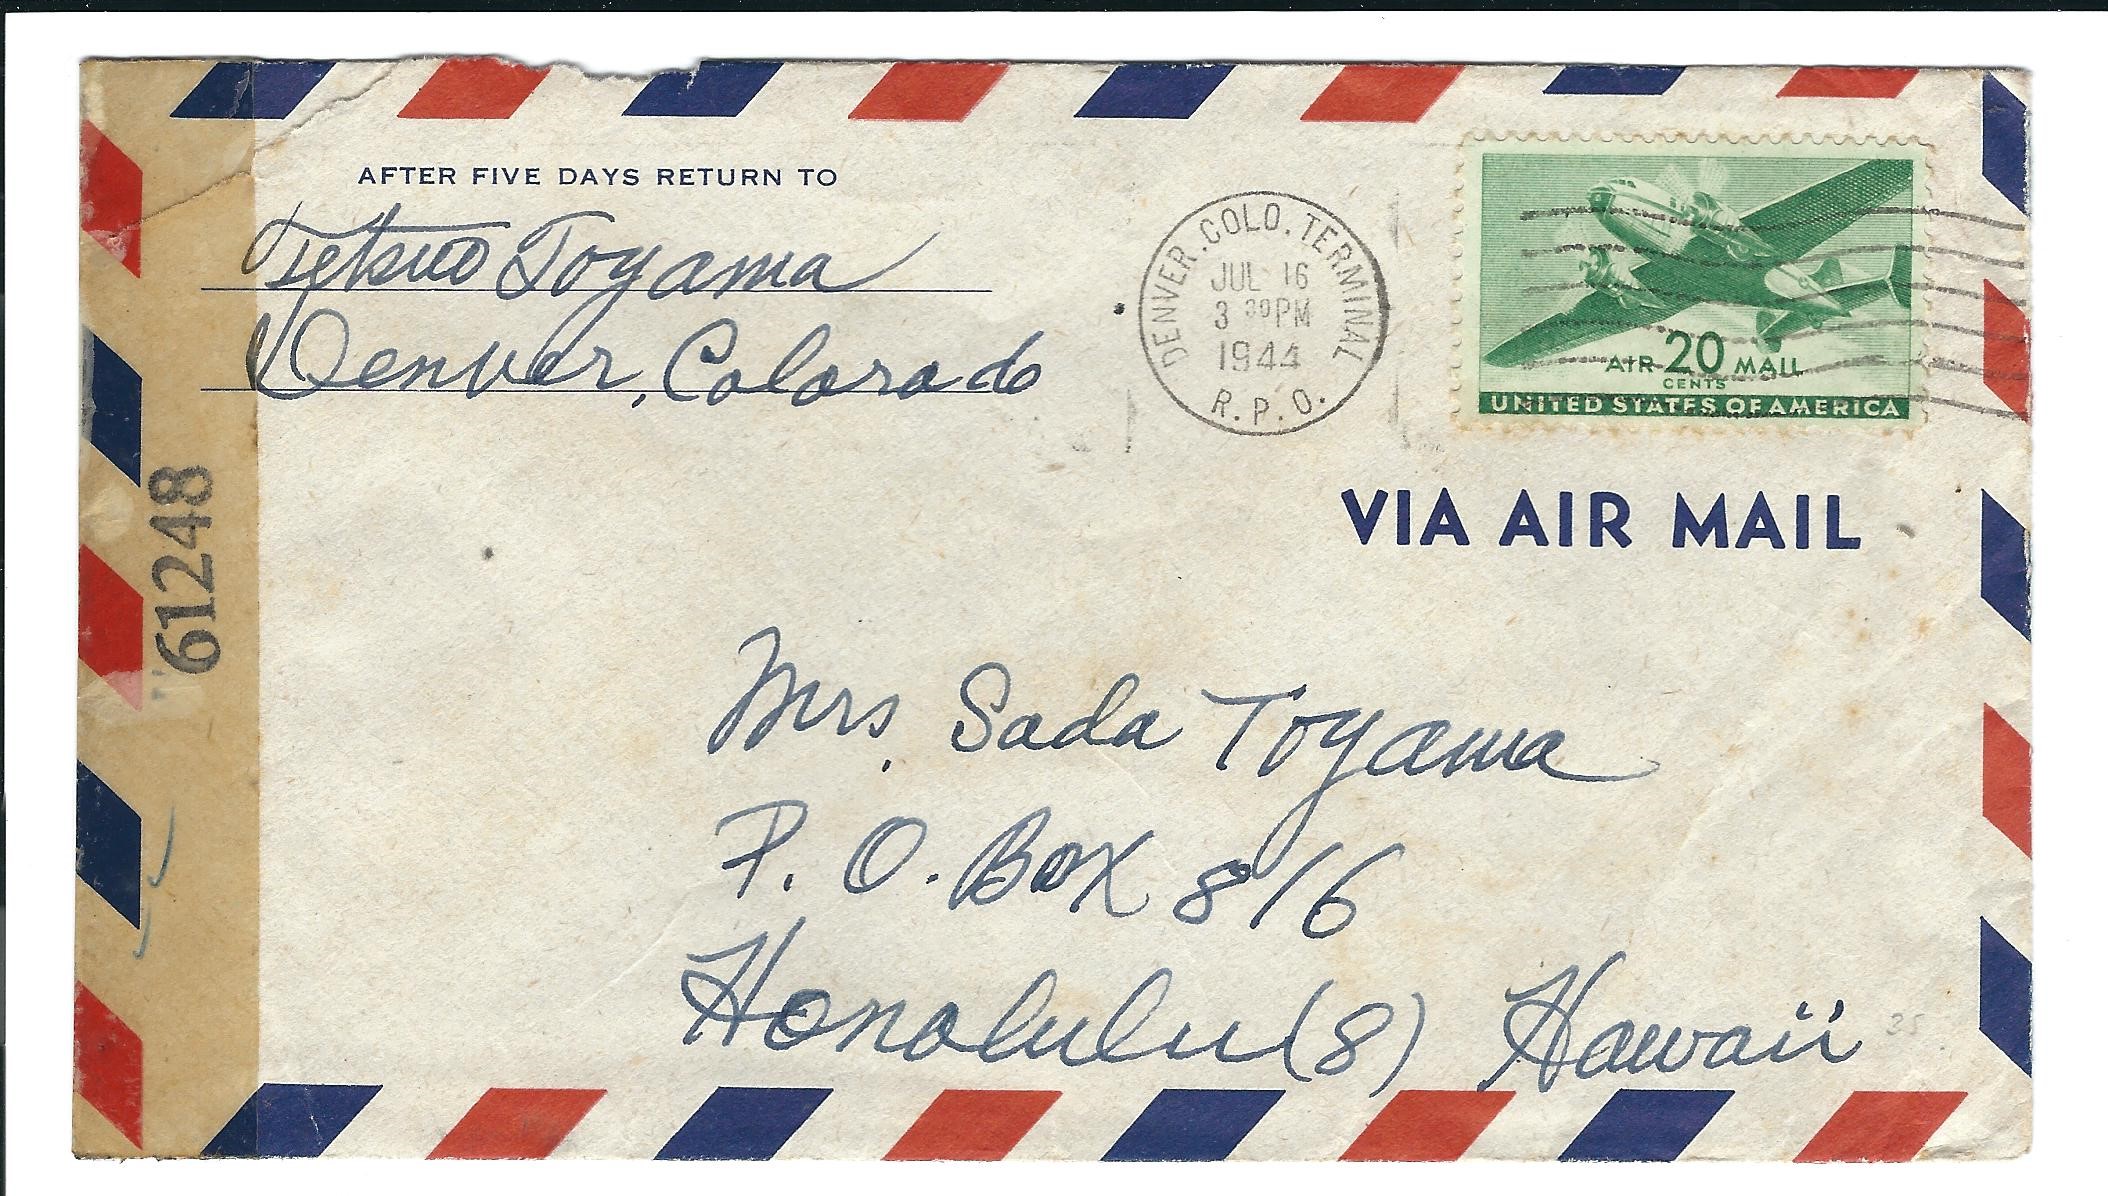 AFTER FIVE DAYS RETURN TO
Tetsuo Toyama
Denver, Colorado
DENVER. COLO. TERMINAL
JUL 16
3 30 PM
1944
R. P. O.
AIR 20 MAIL
CENTS
UNITED STATES OF AMERICA
VIA AIR MAIL
61248
Mrs. Sada Toyama
P. O. Box 816
Honolulu (8) Hawaii
35